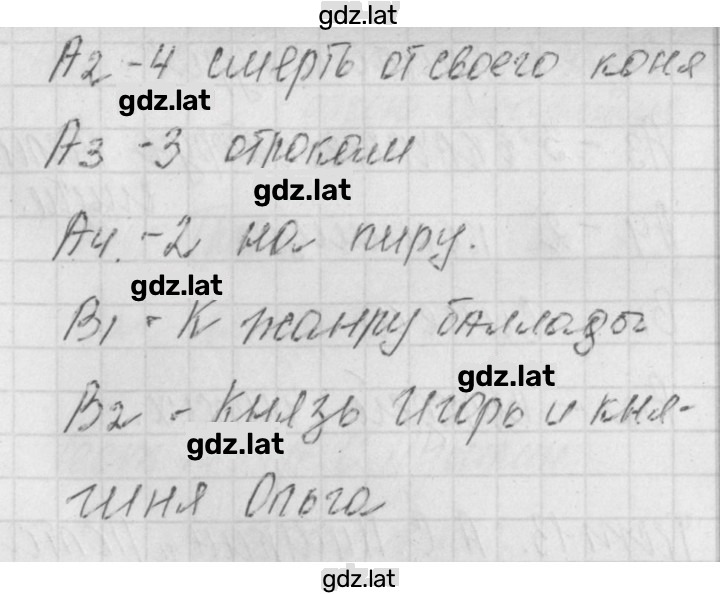 gdz.lat
А2 -4 смерть от своего коня
gdz.lat
А3 -3 отроками
gdz.lat
А4. -2 на пиру.
gdz.lat
В1 - К жанру баллады
gdz.lat
В2 - Князь Игорь и кня-
gdz.lat
гиня Ольга
gdz.lat